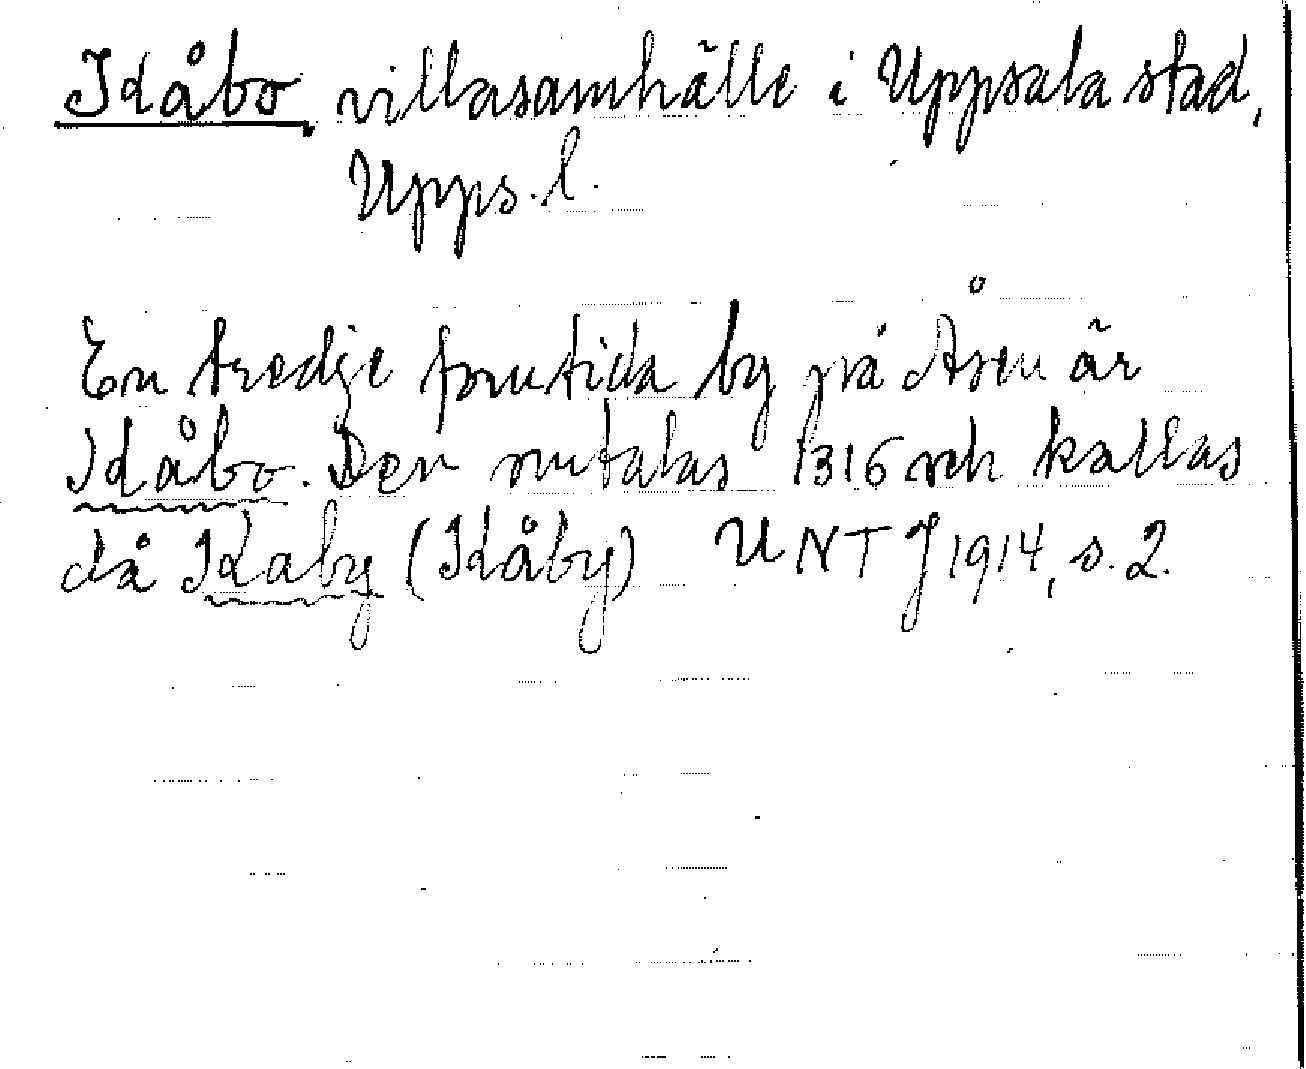 Idåbo villasamhälle i Uppsala stad,
Upps. l.
En tredje forntida by på Åsen är
Idåbo. Den omtalas 1316 och kallas
då Idaby (Idåby) UNT J 1914, s. 2.